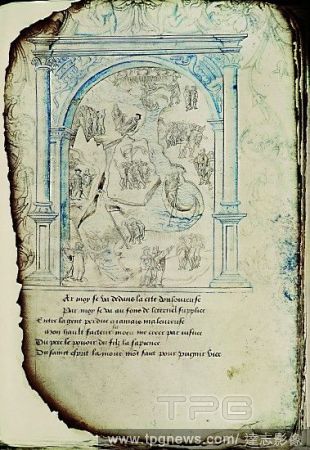 Ar moy se va dedans la cite douloureuse
Par moy se va au fons de leternel supplice
Entre la gent perdue a jamais maleureuse
Mon hault facteur meu me creer par justice
Du pere le pouoir du filz la sapience
Du sainct esprit la mour mont faut pour pugnir vice
TPG
www.tpgnews.com/ 達志影像